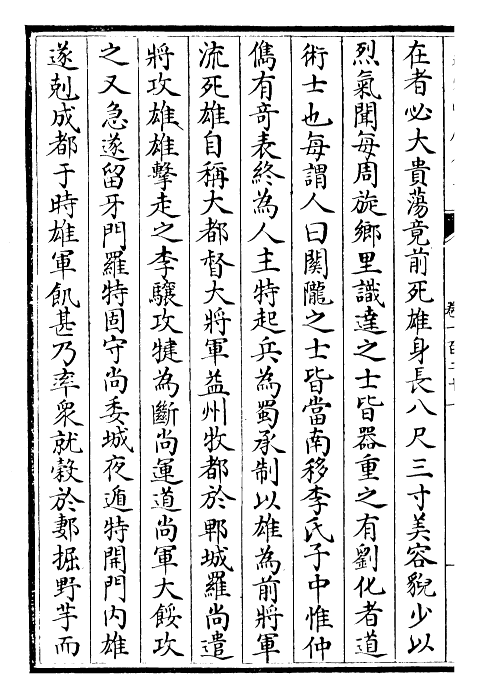 在者必大貴蕩竟前死雄身長八尺三寸美容貌少以
烈氣聞每周旋鄉里識達之士皆器重之有劉化者道
術士也每謂人曰關隴之士皆當南移李氏子中惟仲
儁有竒表終為人主特起兵為蜀承制以雄為前將軍
流死雄自稱大都督大將軍益州牧都於郫城羅尚遣
將攻雄雄擊走之李驤攻犍為斷尚運道尚軍大餒攻
之又急遂留牙門羅特固守尚委城夜遁特開門內雄
遂剋成都于時雄軍飢甚乃率衆就榖於郪掘野芋而